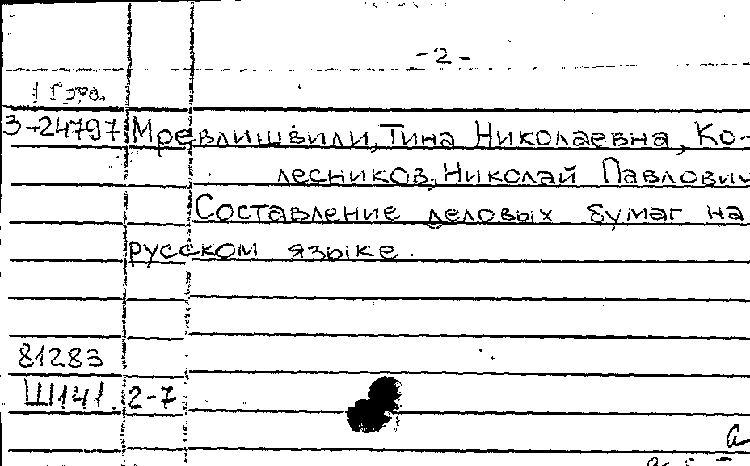 -2-
З-24797 Мревлишвили, Тина Николаевна, Ко-
лесников, Николай Павлович
Составление деловых бумаг на
русском языке.
81283
Ш141. 2-7